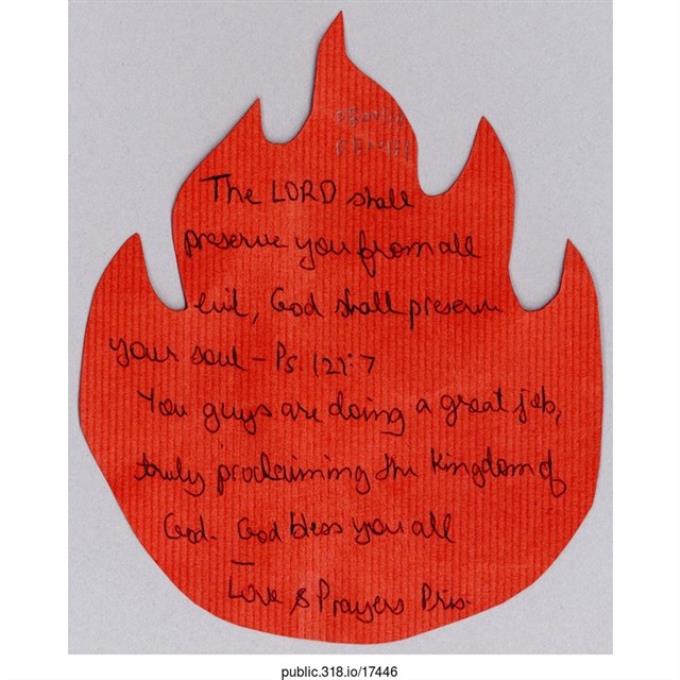 The LORD shall
preserve you from all
evil, God shall preserve
your soul - Ps. 121:7
You guys are doing a great job,
truly proclaiming the kingdom of
God. God bless you all
Love & Prayers Pris.
public.318.io/17446